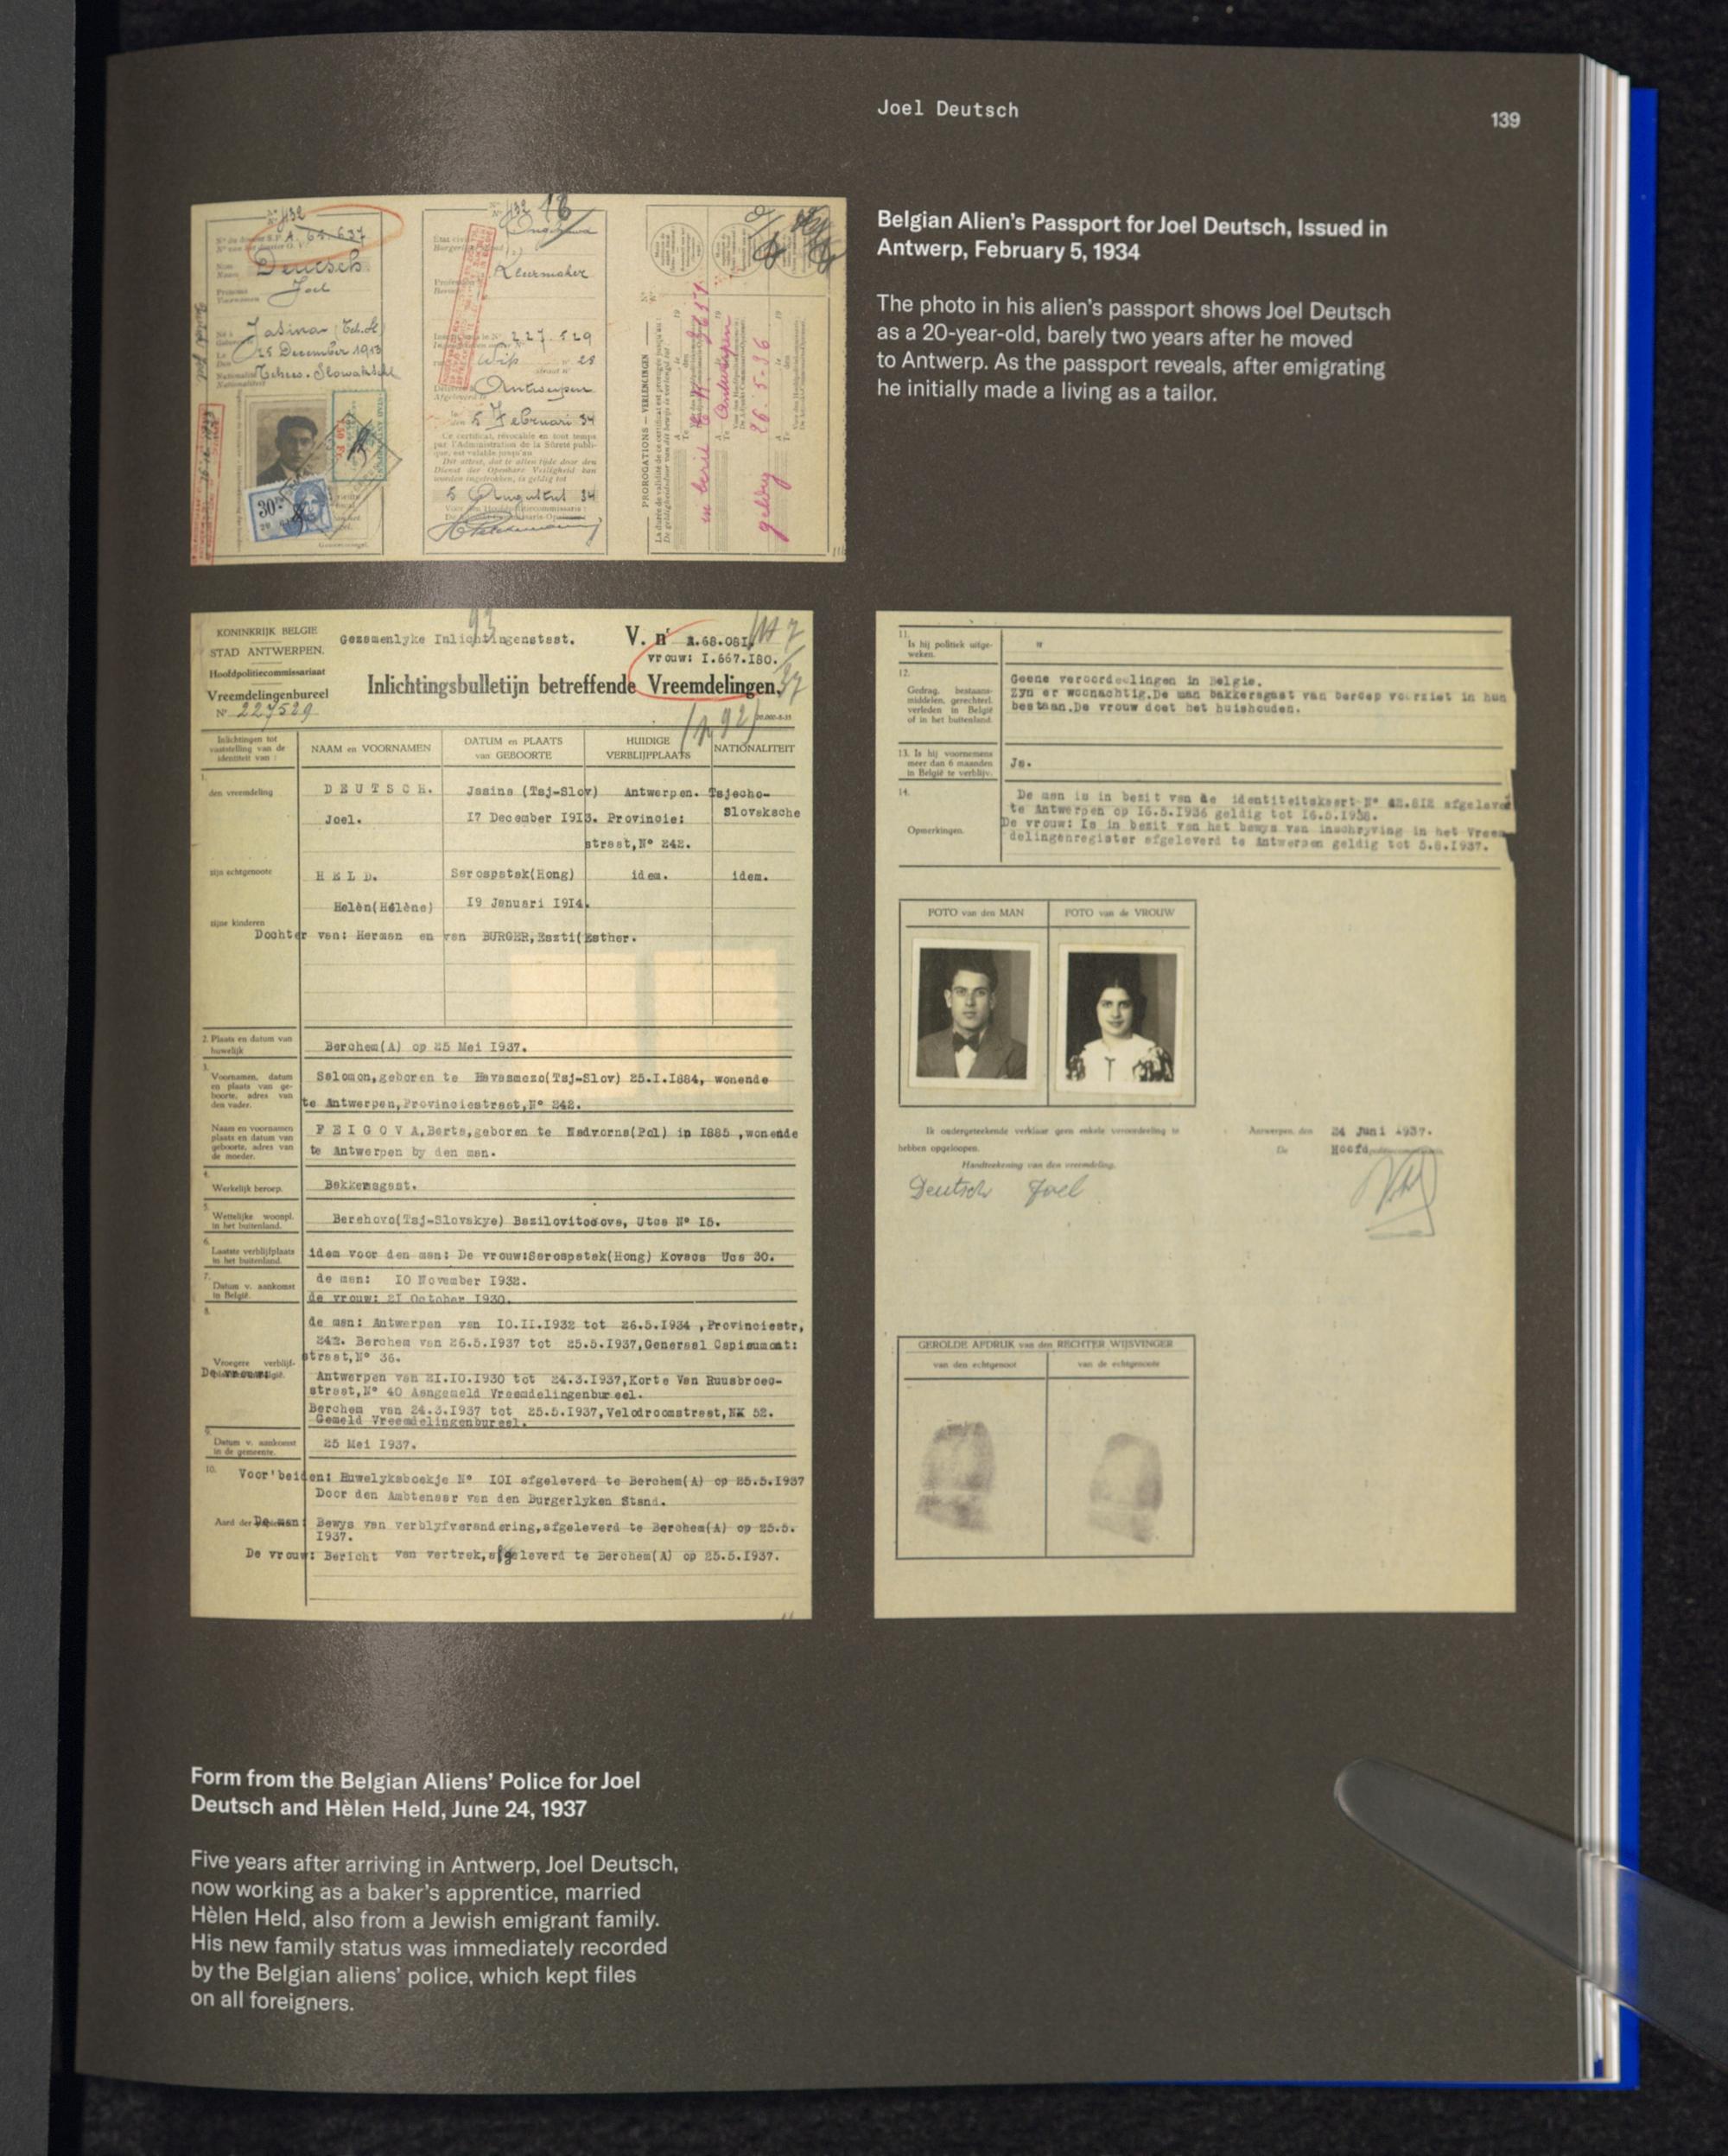 Joel Deutsch
139
Belgian Alien's Passport for Joel Deutsch, Issued in
Antwerp, February 5, 1934
The photo in his alien's passport shows Joel Deutsch
as a 20-year-old, barely two years after he moved
to Antwerp. As the passport reveals, after emigrating
he initially made a living as a tailor.
Nº 432
A. 65.637
Deutsch
Joel
Jasina
25 December 1913
Kleermaker
227.529
Wip 25
Antwerpen
5 Februari 34
Ce certificat, révocable en tout temps
par l'Administration de la Sûreté publi-
que, est valable jusqu'au
Dit attest, dat te allen tijde door den
Dienst der Openbare Veiligheid kan
worden ingetrokken, is geldig tot
5 Augustus 34
PROROGATIONS — VERLENGINGEN
Antwerpen
26-5-36
KONINKRIJK BELGIE
STAD ANTWERPEN.
Hoofdpolitiecommissariaat
Vreemdelingenbureel
Nº 227529
Gezamenlyke Inlichtingenstaat.
V. nr A.68.081
vrouw: I.667.I80.
Inlichtingsbulletijn betreffende Vreemdelingen.
Inlichtingen tot
vaststelling van de
identiteit van :
NAAM en VOORNAMEN
DATUM en PLAATS
van GEBOORTE
HUIDIGE
VERBLIJFPLAATS
NATIONALITEIT
1.
den vreemdeling
D E U T S C H.
Joel.
Jasina (Tsj-Slov)
I7 December I9I3.
Antwerpen.
Provincie:
straat,Nº 242.
Tsjecho-
Slovaksche
zijn echtgenoote
H E L D.
Helèn(Hélène)
Sarospatak(Hong)
I9 Januari I9I4.
idem.
idem.
zijne kinderen
Dochter van: Herman en van BURGER,Eszti(Esther.
2. Plaats en datum van
huwelijk
Berchem(A) op 25 Mei I937.
3.
Voornamen, datum
en plaats van ge-
boorte, adres van
den vader.
Salomon,geboren te Havasmezo(Tsj-Slov) 25.I.I884, wonende
te Antwerpen,Provinciestraat,Nº 242.
Naam en voornamen
plaats en datum van
geboorte, adres van
de moeder.
F E I G O V A,Berta,geboren te Nadvorna(Pol) in I885 ,wonende
te Antwerpen by den man.
4.
Werkelijk beroep.
Bakkersgast.
5.
Wettelijke woonpl.
in het buitenland.
Berehovo(Tsj-Slovakye) Bazilovitcova, Utca Nº I5.
6.
Laatste verblijfplaats
in het buitenland.
idem voor den man: De vrouw:Sarospatak(Hong) Kovacs Ucs 30.
7.
Datum v. aankomst
in België.
de man: IO November I932.
de vrouw: 2I October I930.
8.
Vroegere verblijf-
de man: Antwerpen van IO.II.I932 tot 26.5.I934 ,Provinciestr,
242. Berchem van 26.5.I937 tot 25.5.I937,Generaal Capiaumont:
straat,Nº 36.
De vrouw:
Antwerpen van 2I.IO.I930 tot 24.3.I937,Korte Van Ruusbroec-
straat,Nº 40 Aangemeld Vreemdelingenbureel.
Berchem van 24.3.I937 tot 25.5.I937,Velodroomstraat, 52.
Gemeld Vreemdelingenbureel.
9.
Datum v. aankomst
in de gemeente.
25 Mei I937.
10.
Voor'beiden: Huwelyksboekje Nº IOI afgeleverd te Berchem(A) op 25.5.I937
Door den Ambtenaar van den Burgerlyken Stand.
De man: Bewys van verblyfverandering,afgeleverd te Berchem(A) op 25.5.
I937.
De vrouw: Bericht van vertrek,afgeleverd te Berchem(A) op 25.5.I937.
11.
Is hij politiek uitge-
weken.
12.
Gedrag, bestaans-
middelen, gerechtel.
verleden in België
of in het buitenland.
Geene veroordeelingen in Belgie.
Zyn er woonachtig.De man bakkersgast van beroep voorziet in hun
bestaan.De vrouw doet het huishouden.
13. Is hij voornemens
meer dan 6 maanden
in België te verblijv.
Ja.
14.
Opmerkingen.
De man is in bezit van de identiteitskaart Nº 42.8I2 afgelever
te Antwerpen op I6.5.I936 geldig tot I6.5.I938.
De vrouw: Is in bezit van het bewys van inschryving in het Vreem
delingenregister afgeleverd te Antwerpen geldig tot 5.8.I937.
FOTO van den MAN
FOTO van de VROUW
Ik ondergeteekende verklaar geen enkele veroordeeling te
hebben opgeloopen.
Handteekening van den vreemdeling.
Deutsch Joel
Antwerpen, den 24 Juni 1937.
De Hoofd
GEROLDE AFDRUK van den RECHTER WIJSVINGER
van den echtgenoot
van de echtgenoote
Form from the Belgian Aliens' Police for Joel
Deutsch and Hèlen Held, June 24, 1937
Five years after arriving in Antwerp, Joel Deutsch,
now working as a baker's apprentice, married
Hèlen Held, also from a Jewish emigrant family.
His new family status was immediately recorded
by the Belgian aliens' police, which kept files
on all foreigners.